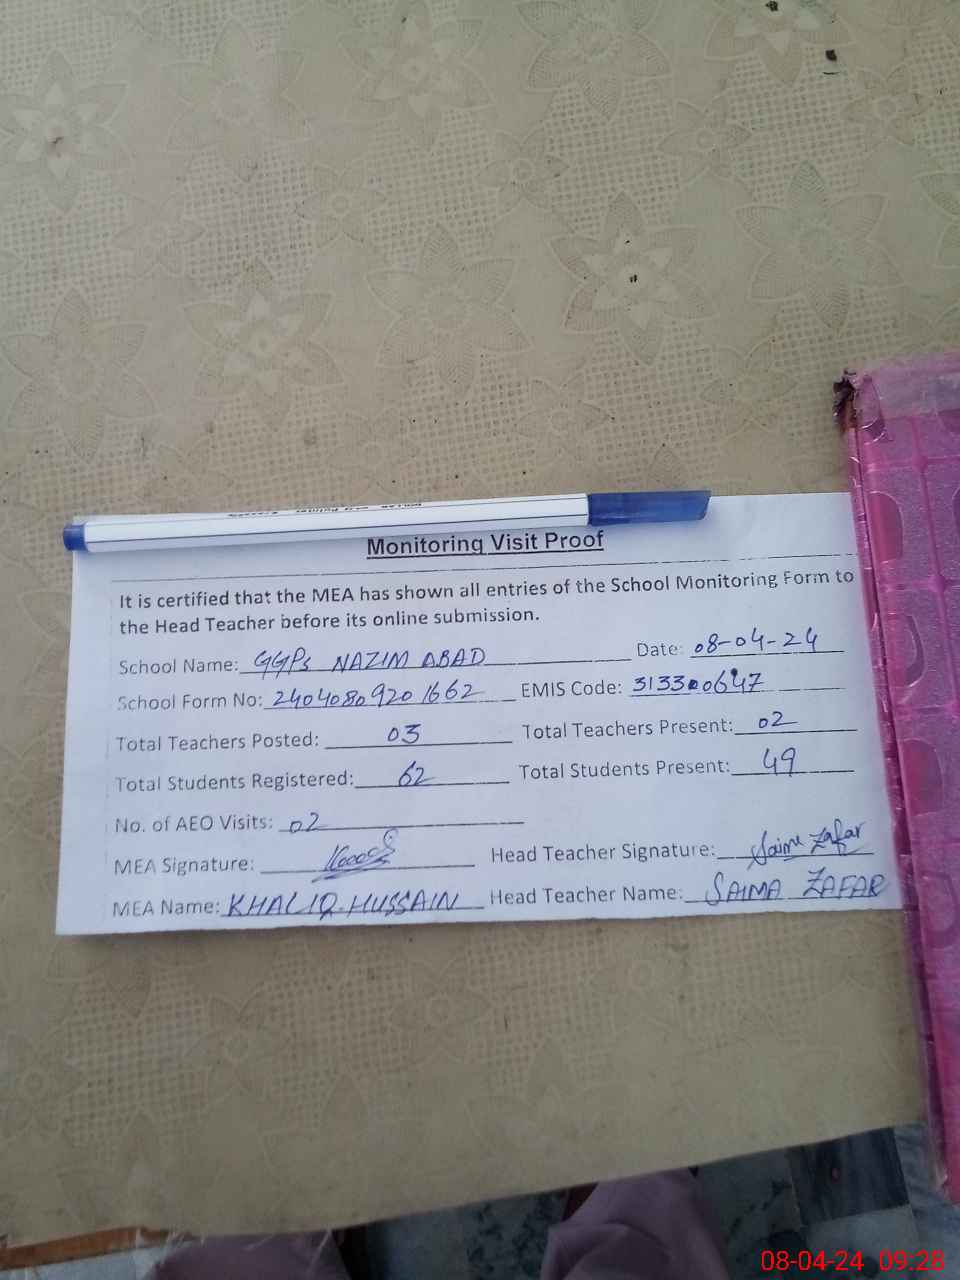 Monitoring Visit Proof
It is certified that the MEA has shown all entries of the School Monitoring Form to
the Head Teacher before its online submission.
School Name: GGPS NAZIM ABAD Date: 08-04-24
School Form No: 24040809201662 EMIS Code: 313300647
Total Teachers Posted: 03 Total Teachers Present: 02
Total Students Registered: 62 Total Students Present: 49
No. of AEO Visits: 02
MEA Signature: Head Teacher Signature: Saima Zafar
MEA Name: KHALIQ.HUSSAIN Head Teacher Name: SAIMA ZAFAR
08-04-24 09:28